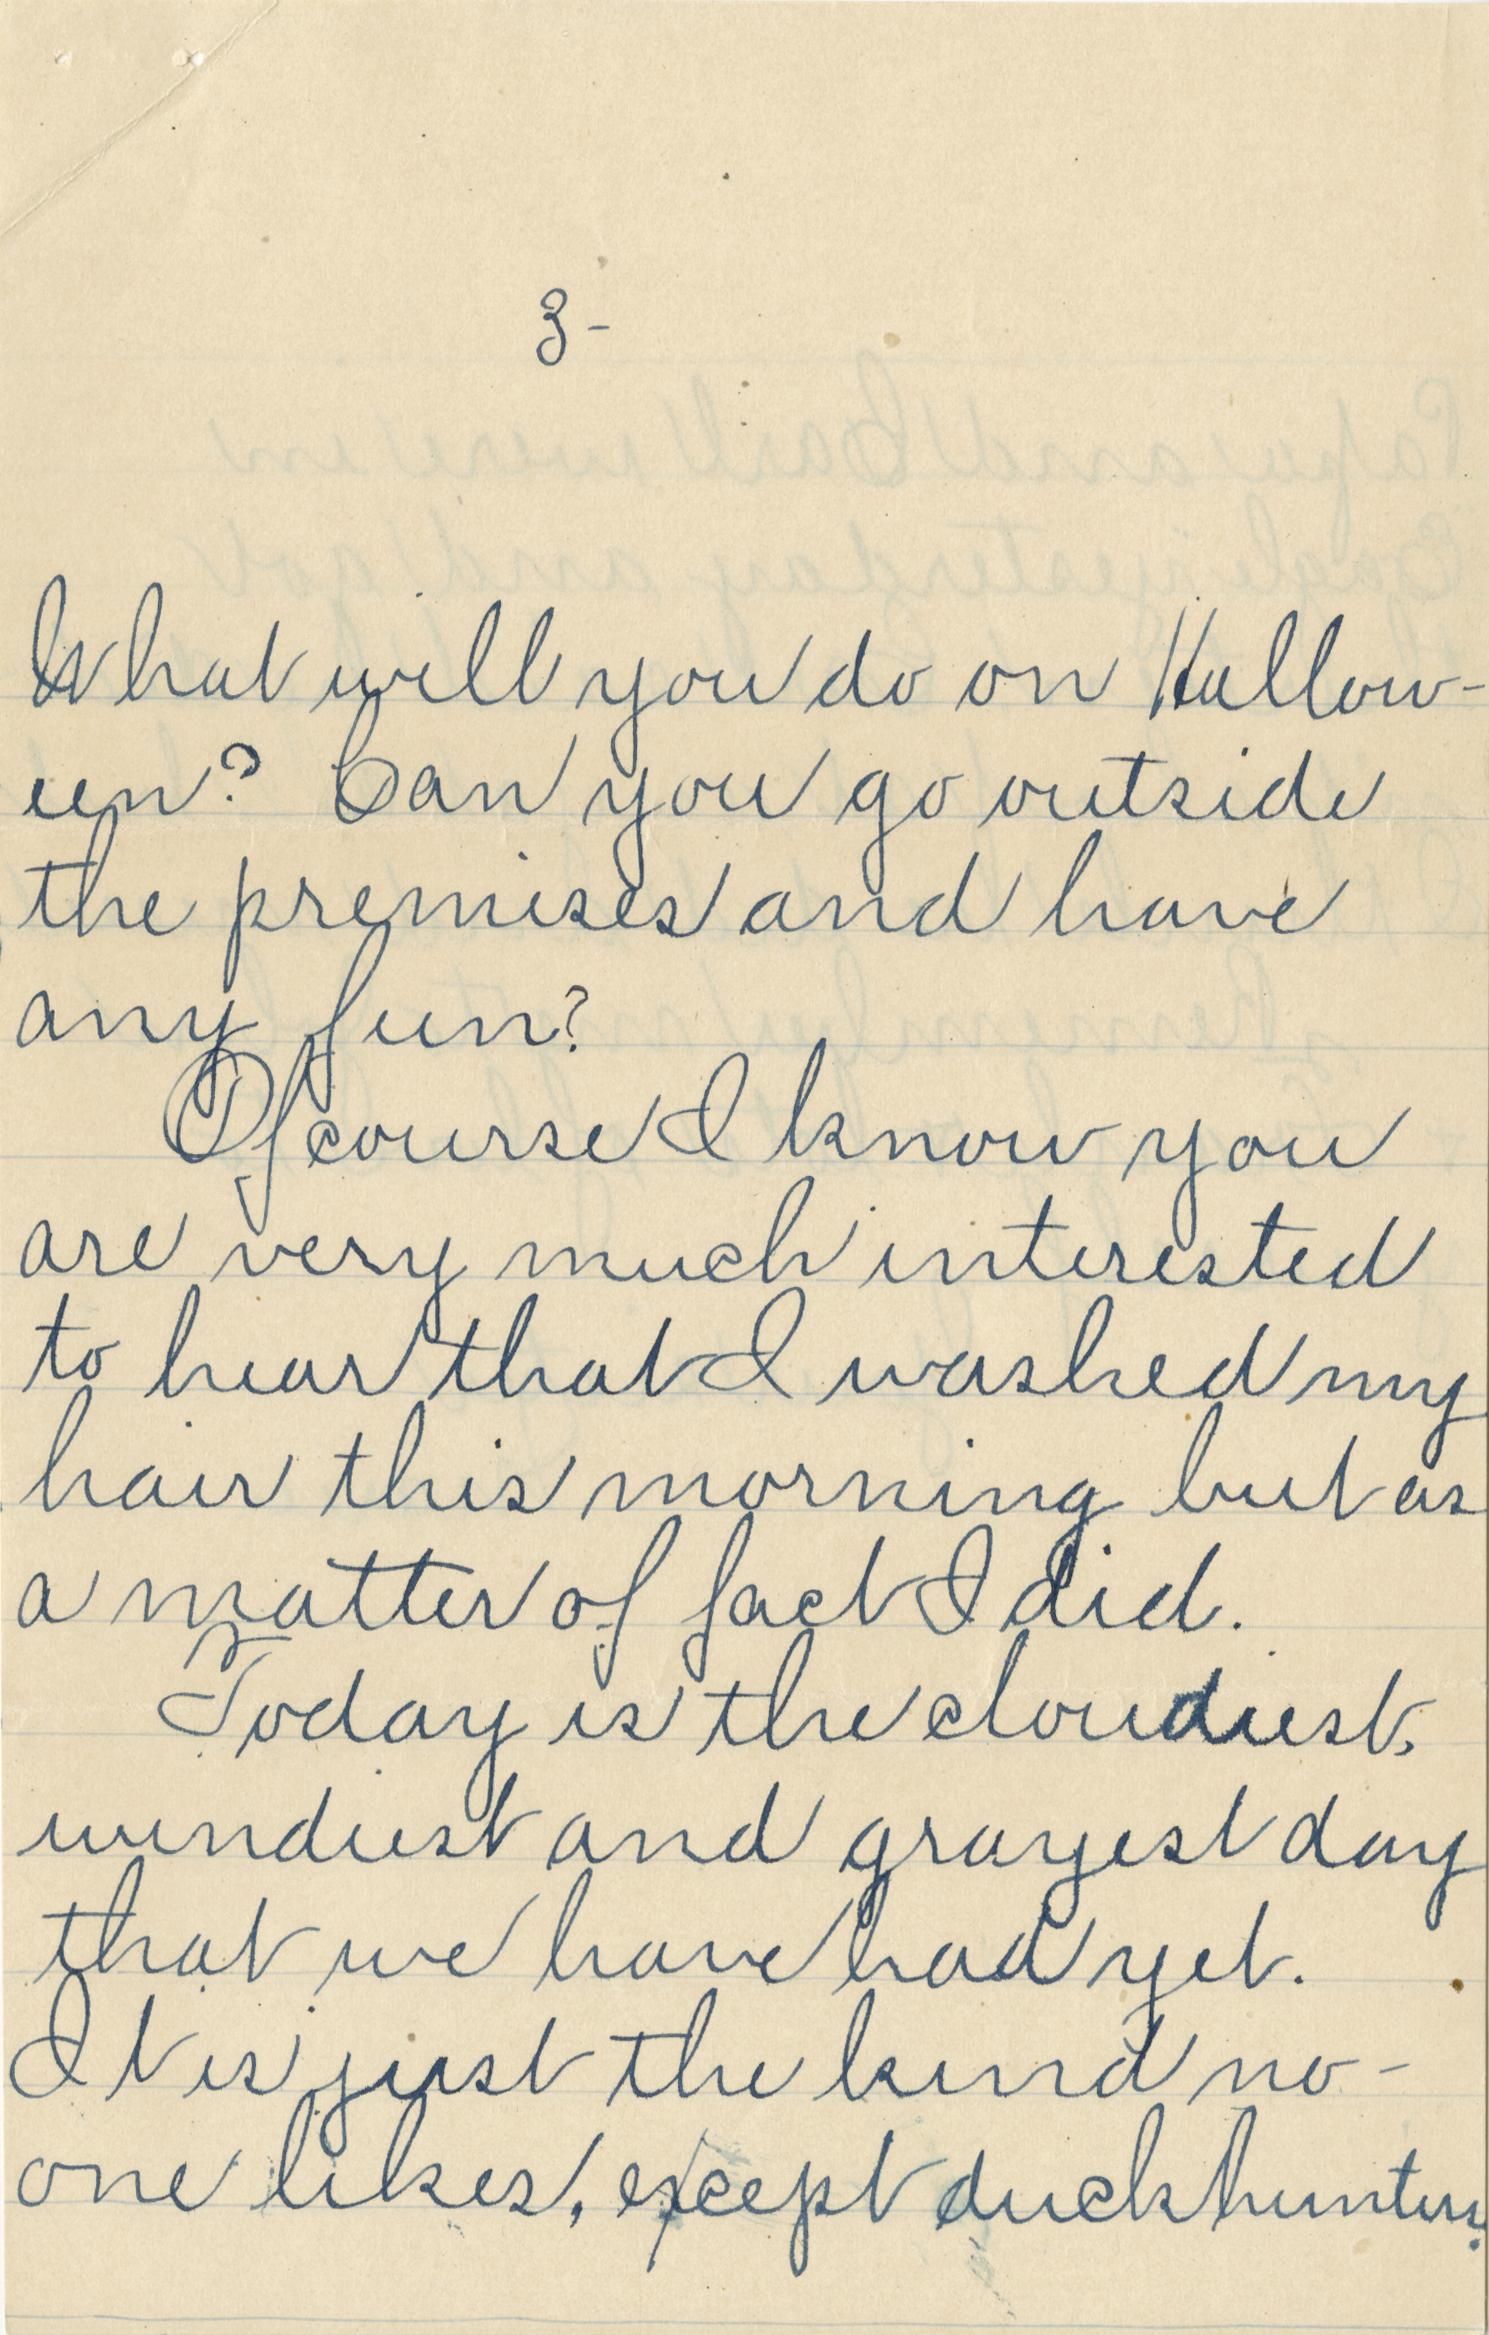 3-
What will you do on Hallow-
een? Can you go outside
the premises and have
any fun?
Of course I know you
are very much interested
to hear that I washed my
hair this morning but as
a matter of fact I did.
Today is the cloudiest,
windiest and grayest day
that we have had yet.
It is just the kind no-
one likes, except duck hunters.